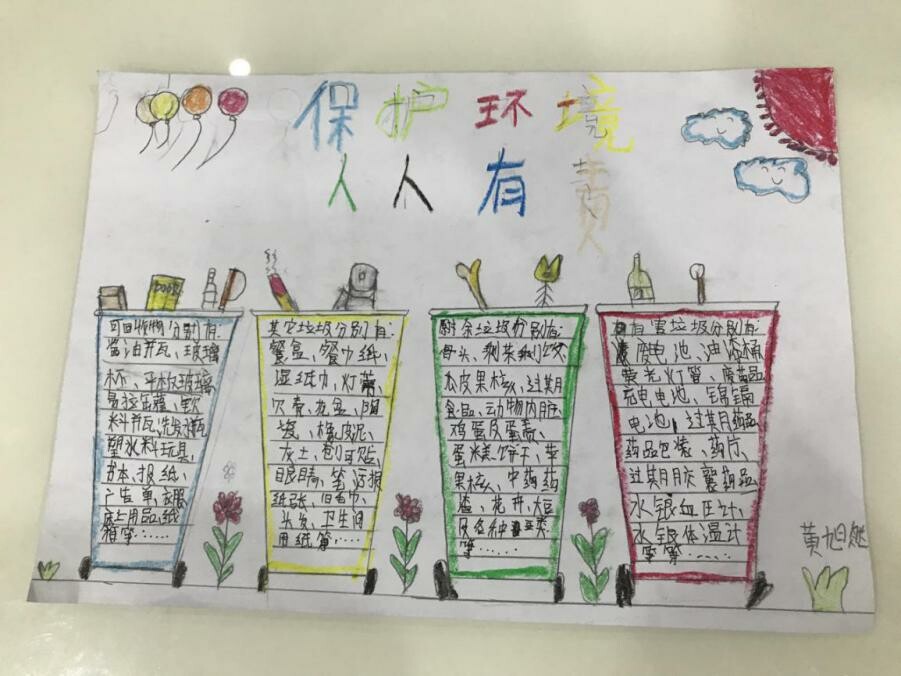 保护环境
人人有责
可回收物分别有:
酱油并瓦、玻璃
杯、平板玻璃
易拉罐、
料并瓦、洗发瓶
塑水料玩具
书本、报纸、
广告单、衣服
床上用品、纸
箱等......
其它垃圾分别有:
餐盒、餐巾纸、
湿纸巾、灯
花盆、陶
瓷、橡皮泥、
灰土、创可贴、
眼睛、笔、污损
纸张、旧毛巾、
头发、卫生间
用纸等....
厨余垃圾分别有:
骨头、剩菜剩饭
瓜皮果核、过期
食品、动物内脏
鸡蛋皮蛋壳、
蛋糕、饼干、苹
果核、中药药
渣、花卉、大豆
及各种豆类
等......
有害垃圾分别有:
废电池、油漆桶
荧光灯管、
充电电池、镍镉
电池、过期药品
药品包装、药片、
过期胶囊药品
水银血压计、
水银体温计
等等.....
黄旭然